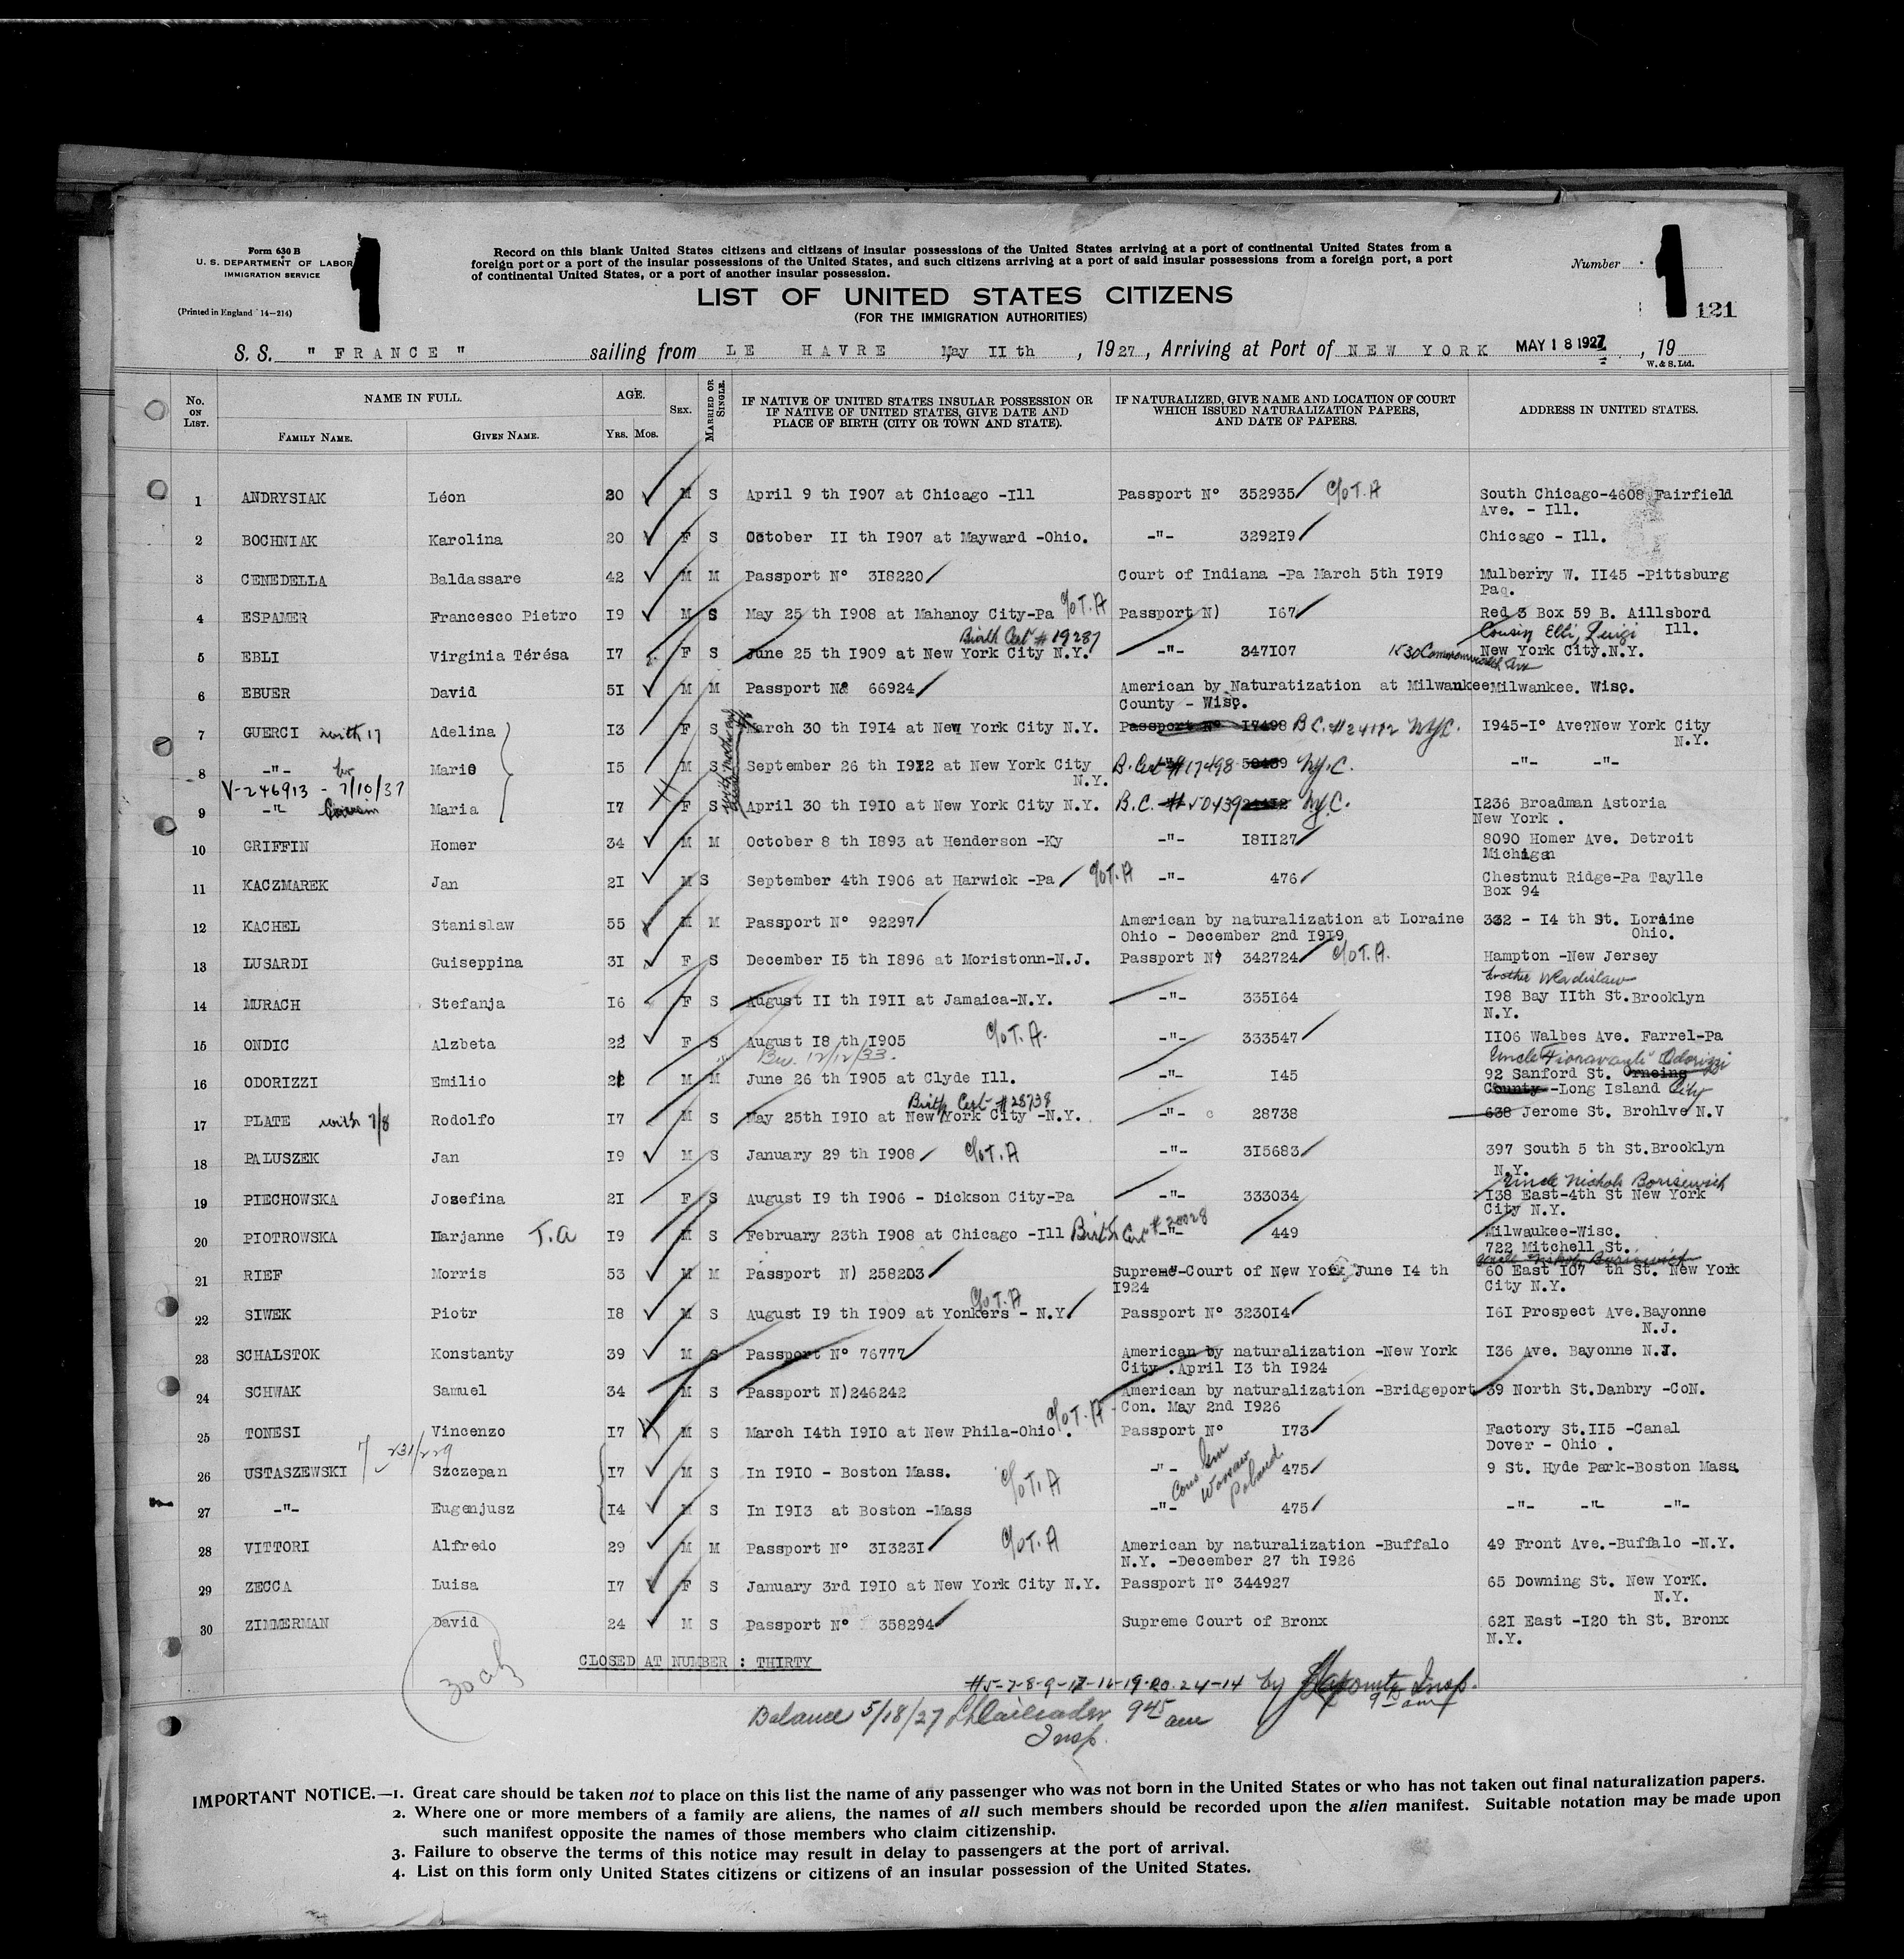 Form 630 B
U. S. DEPARTMENT OF LABOR
IMMIGRATION SERVICE
(Printed in England 14—214)
1
Record on this blank United States citizens and citizens of insular possessions of the United States arriving at a port of continental United States from a
foreign port or a port of the insular possessions of the United States, and such citizens arriving at a port of said insular possessions from a foreign port, a port
of continental United States, or a port of another insular possession.
LIST OF UNITED STATES CITIZENS
(FOR THE IMMIGRATION AUTHORITIES)
Number 1
121
S. S. " FRANCE " sailing from LE HAVRE May II th , 1927 , Arriving at Port of NEW YORK MAY 18 1927 , 19
W. & S. Ltd.
No. ON LIST. NAME IN FULL. FAMILY NAME. GIVEN NAME. AGE. YRS. MOS. SEX. MARRIED OR SINGLE. IF NATIVE OF UNITED STATES INSULAR POSSESSION OR IF NATIVE OF UNITED STATES, GIVE DATE AND PLACE OF BIRTH (CITY OR TOWN AND STATE). IF NATURALIZED, GIVE NAME AND LOCATION OF COURT WHICH ISSUED NATURALIZATION PAPERS, AND DATE OF PAPERS. ADDRESS IN UNITED STATES.
1 ANDRYSIAK Léon 20 M S April 9 th I907 at Chicago -Ill Passport N° 352935 C/o T.A South Chicago-4608 Fairfield
Ave. - Ill.
2 BOCHNIAK Karolina 20 F S October II th I907 at Mayward -Ohio. -"- 3292I9 Chicago - Ill.
3 CENEDELLA Baldassare 42 M M Passport N° 3I8220 Court of Indiana -Pa March 5th I9I9 Mulberry W. II45 -Pittsburg
Paq.
4 ESPAMER Francesco Pietro I9 M S May 25 th I908 at Mahanoy City-Pa C/o T.A Passport N) I67 Red 3 Box 59 B. Aillsbord
Ill.
Birth Cert # 19287 Cousin Elli, Luigi
5 EBLI Virginia Térésa I7 F S June 25 th I909 at New York City N.Y. -"- 347I07 New York City.N.Y.
6 EBUER David 5I M M Passport N& 66924 American by Naturatization at Milwankee Milwankee. Wisc.
County - Wisc.
7 GUERCI with 17 Adelina I3 F S March 30 th I9I4 at New York City N.Y. Passport N° I7498 B.C. #24112 NYC. I945-I° Ave?New York City
N.Y.
8 -"- Mario I5 M S September 26 th I9I2 at New York City B. Cert #17498 50439 N.Y.C. -"- -"-
N.Y.
V-246913 - 7/10/37
9 -"- Maria I7 F S April 30 th I9I0 at New York City N.Y. B.C. #50439 N.Y.C. I236 Broadman Astoria
New York .
10 GRIFFIN Homer 34 M M October 8 th I893 at Henderson -Ky -"- I8II27 8090 Homer Ave. Detroit
Michigan
11 KACZMAREK Jan 2I M S September 4th I906 at Harwick -Pa C/o T.A -"- 476 Chestnut Ridge-Pa Taylle
Box 94
12 KACHEL Stanislaw 55 M M Passport N° 92297 American by naturalization at Loraine 332 - I4 th St. Loraine
Ohio - December 2nd I9I9 Ohio.
13 LUSARDI Guiseppina 3I F S December I5 th I896 at Moristonn-N.J. Passport N) 342724 C/o T.A. Hampton -New Jersey
brother Wladislaw
14 MURACH Stefanja I6 F S August II th I9II at Jamaica-N.Y. -"- 335I64 I98 Bay IIth St.Brooklyn
N.Y.
15 ONDIC Alzbeta 22 F S August I8 th I905 C/o T.A. -"- 333547 II06 Walbes Ave. Farrel-Pa
12/12/33. Uncle Fioravanti Odorizzi
16 ODORIZZI Emilio 2I M M June 26 th I905 at Clyde Ill. -"- I45 92 Sanford St.
County -Long Island City
Birth Cert #28738
17 PLATE with 7/8 Rodolfo I7 M S May 25th I9I0 at New York City -N.Y. -"- c 28738 638 Jerome St. Brohlve N.V
18 PALUSZEK Jan I9 M S January 29 th I908 C/o T.A -"- 3I5683 397 South 5 th St.Brooklyn
N.Y.
Uncle Nichols Borisewich
19 PIECHOWSKA Jozefina 2I F S August I9 th I906 - Dickson City-Pa -"- 333034 I38 East-4th St New York
City N.Y.
20 PIOTROWSKA Marjanne T.A I9 M S February 23th I908 at Chicago -Ill Birth Cert # 20028 -"- 449 Milwaukee-Wisc.
722 Mitchell St.
21 RIEF Morris 53 M M Passport N) 258203 Supreme-Court of New York June I4 th 60 East I07 th St. New York
I924 City N.Y.
C/o T.A
22 SIWEK Piotr I8 M S August I9 th I909 at Yonkers - N.Y. Passport N° 3230I4 I6I Prospect Ave.Bayonne
N.J.
23 SCHALSTOK Konstanty 39 M S Passport N° 76777 American by naturalization -New York I36 Ave. Bayonne N.J.
City .April I3 th I924
24 SCHWAK Samuel 34 M S Passport N)246242 American by naturalization -Bridgeport 39 North St.Danbry -CoN.
Con. May 2nd I926
25 TONESI Vincenzo I7 M S March I4th I9I0 at New Phila-Ohio . C/o T.A Passport N° I73 Factory St.II5 -Canal
Dover - Ohio .
26 USTASZEWSKI Szczepan I7 M S In I9I0 - Boston Mass. C/o T.A -"- 475 9 St. Hyde Park-Boston Mass.
Cons Gen Warsaw Poland
27 -"- Eugenjusz I4 M S In I9I3 at Boston -Mass -"- 475 -"- -"- -"-
28 VITTORI Alfredo 29 M M Passport N° 3I323I C/o T.A American by naturalization -Buffalo 49 Front Ave.-Buffalo -N.Y.
N.Y. -December 27 th I926
29 ZECCA Luisa I7 F S January 3rd I9I0 at New York City N.Y. Passport N° 344927 65 Downing St. New YorK.
N.Y.
30 ZIMMERMAN David 24 M S Passport N° 358294 Supreme Court of Bronx 62I East -I20 th St. Bronx
N.Y.
CLOSED AT NUMBER : THIRTY
#5-7-8-9-17-16-19-20-24-14 by Insp.
Balance 5/18/27 9 45 am
Insp.
IMPORTANT NOTICE.—1. Great care should be taken not to place on this list the name of any passenger who was not born in the United States or who has not taken out final naturalization papers.
2. Where one or more members of a family are aliens, the names of all such members should be recorded upon the alien manifest. Suitable notation may be made upon
such manifest opposite the names of those members who claim citizenship.
3. Failure to observe the terms of this notice may result in delay to passengers at the port of arrival.
4. List on this form only United States citizens or citizens of an insular possession of the United States.